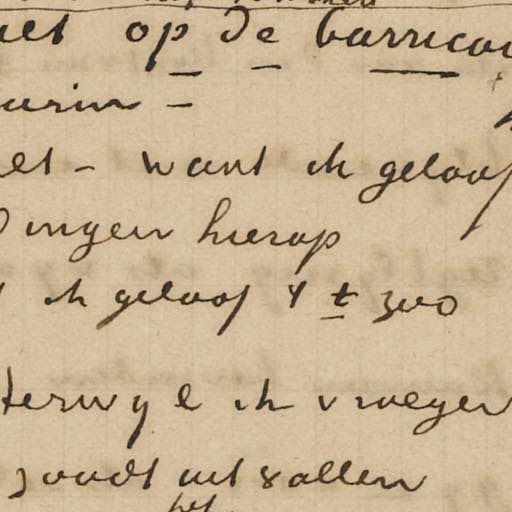 op de barrica
want ik geloof
dingen hierop
ik geloof 't zoo
terwyl ik vroeger
zoudt uitvallen